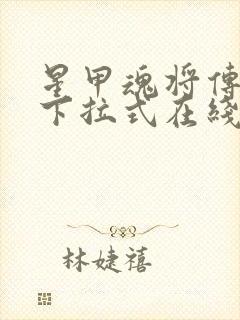 星甲魂将传
下拉式在线
林婕禧